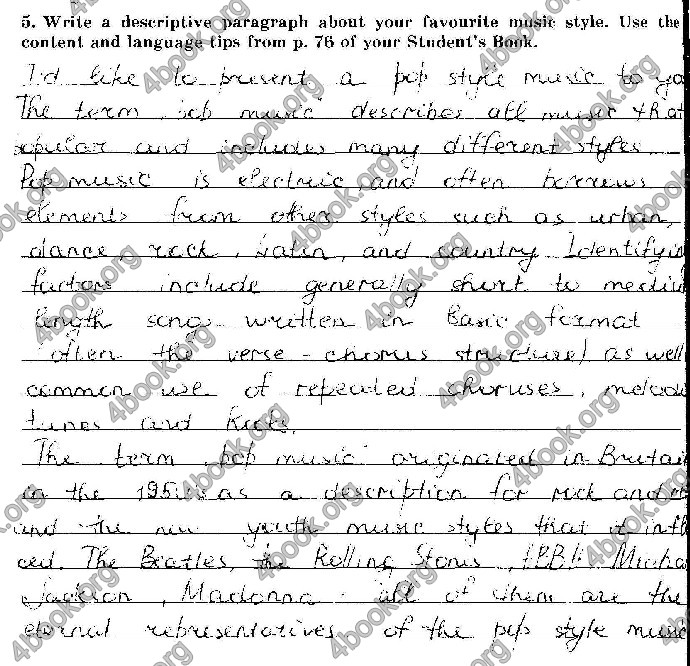 5. Write a descriptive paragraph about your favourite music style. Use the
content and language tips from p. 76 of your Student's Book.
I'd like to present a pop style music to yo
The term "pop music" describes all music that
opular and includes many different styles
Pop music is electric and often borrows
elements from other styles such as urban,
dance, rock, Latin, and country Identifyin
factors include generally short to mediu
length song written in Basic format
often the verse - chorus structure) as well
common use of repeated choruses, melodi
tunes and
The term "pop music" originated in Britai
in the 195 as a description for rock and
and the new youth music styles that it infl
ced. The Beatles, the Rolling Stones, Micha
Jackson, Madonna - all of them are the
eternal representatives of the pop style music
4book.org